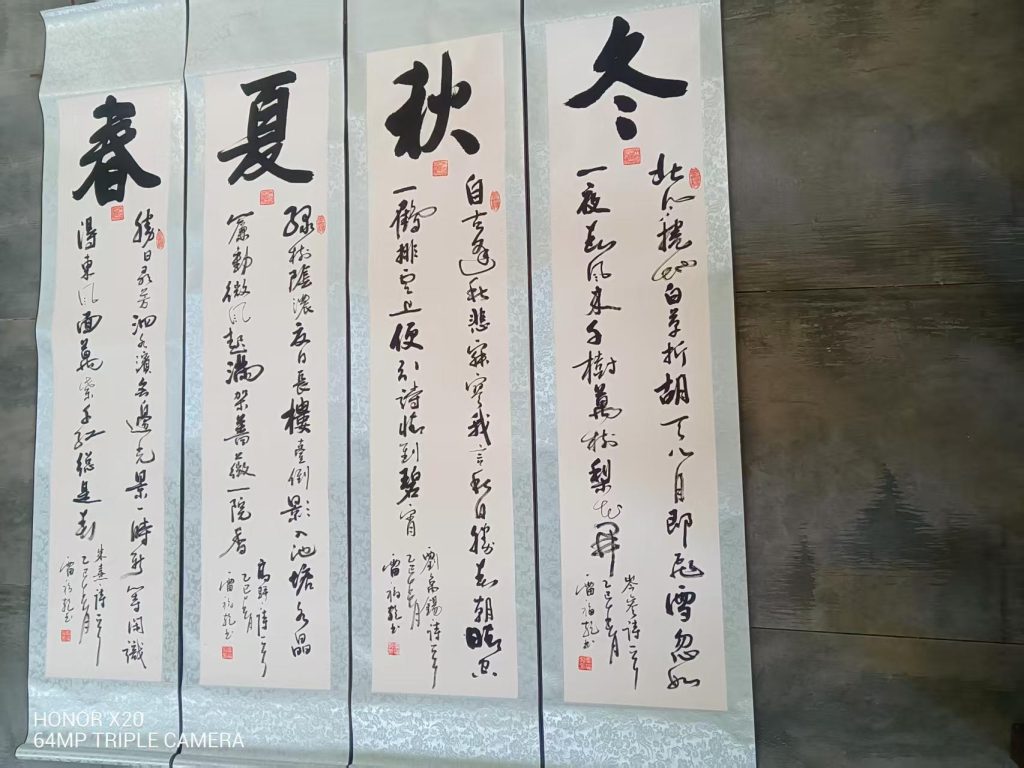 春
勝日尋芳泗水濱無邊光景一時新等閒識
得東風面萬紫千紅總是春
朱熹詩一首
乙巳年月
雷乾書
夏
綠樹陰濃夏日長樓臺倒影入池塘水晶
簾動微風起滿架薔薇一院香
高駢詩一首
乙巳年月
雷乾書
秋
自古逢秋悲寂寥我言秋日勝春朝晴空
一鶴排雲上便引詩情到碧霄
劉禹錫詩一首
乙巳年月
雷乾書
冬
北風捲地白草折胡天八月即飛雪忽如
一夜春風來千樹萬樹梨花開
岑參詩一首
乙巳年月
雷乾書
HONOR X20
64MP TRIPLE CAMERA